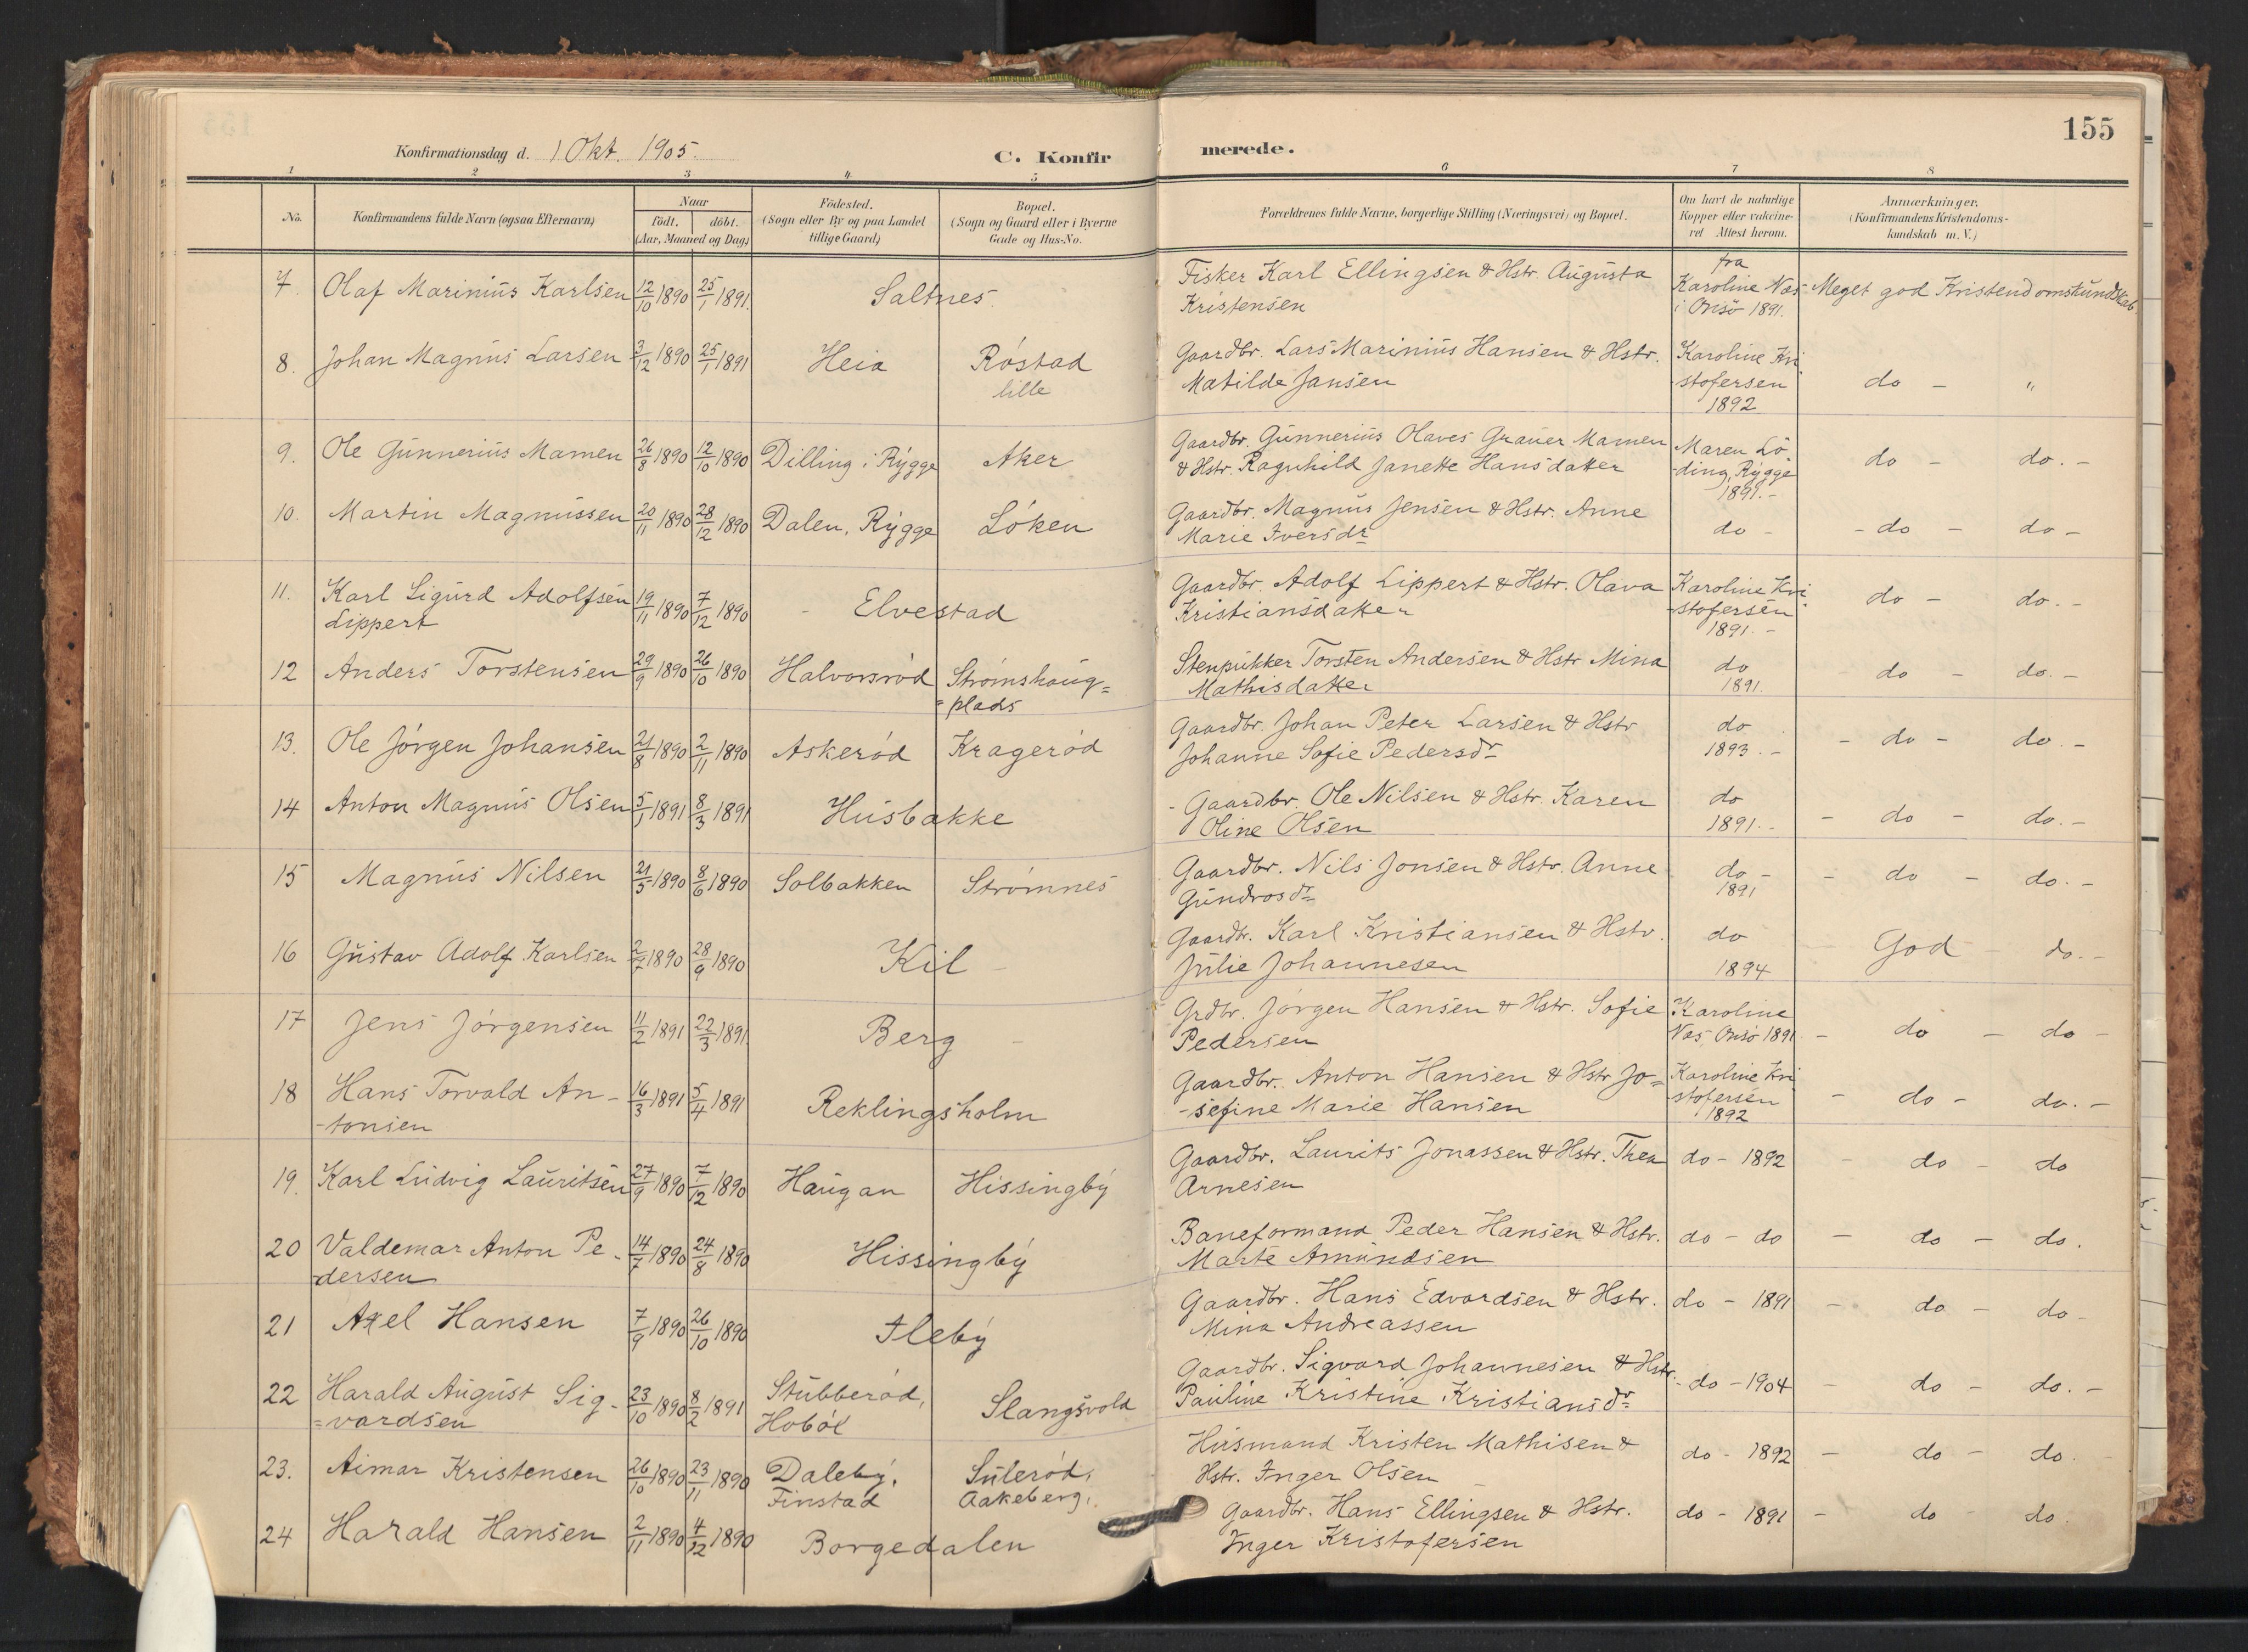 155
Konfirmationsdag d. 1 Okt. 1905.
C. Konfirmerede.
1 2 3 4 5 6 7 8
No.
Konfirmandens fulde Navn (ogsaa Efternavn)
Naar
födt. döbt.
(Aar, Maaned og Dag.)
Födested.
(Sogn eller By og paa Landet
tillige Gaard)
Bopæl.
(Sogn og Gaard eller i Byerne
Gade og Hus-No.
Forældrenes fulde Navne, borgerlige Stilling (Næringsvei) og Bopæl.
Om havt de naturlige
Kopper eller vakcine-
ret Attest herom.
Anmærkninger.
(Konfirmandens Kristendoms-
kundskab m. V.)
7. Olaf Marinius Karlsen 12/10 1890 25/1 1891. Saltnes. Fisker Karl Ellingsen & Hstr. Augusta
Kristensen
fra
Karoline Næs
i Onsö 1891.
Meget god Kristendomskundskab
8. Johan Magnus Larsen 3/12 1890 25/1 1891 Heia Röstad
lille
Gaardbr. Lars Marinius Hansen & Hstr.
Matilde Jansen
Karoline Kri
-stofersen
1892
do - "
9. Ole Gunnerius Mamen 26/8 1890 12/10 1890 Dilling i Rygge Aker
Gaardbr. Gunnerius Olaves Grauer Mamen
& Hstr. Ragnhild Janette Hansdatter
Maren Lö-
-ding, Rygge
1891.-
do - do. -
10. Martin Magnussen 20/11 1890 28/12 1890 Dalen, Rygge Löken
Gaardbr. Magnus Jensen & Hstr. Anne
Marie Iversdr
do -
- do - do -
11. Karl Sigurd Adolfsen
Lippert
19/11 1890 7/12 1890 - Elvestad
Gaardbr. Adolf Lippert & Hstr. Olava
Kristiansdatter
Karoline Kri
-stofersen
1891. -
do - do. -
12 Anders Torstensen 29/9 1890 26/10 1890 Halvorsröd Strömshaug=
=plads
Stenpukker Torsten Andersen & Hstr Mina
Mathisdatter
do
1891.
do - do. -
13. Ole Jörgen Johansen 21/8 1890 2/11 1890 Askeröd Krageröd
Gaardbr. Johan Peter Larsen & Hstr
Johanne Sofie Pedersdr
do
1893. -
- do - do. -
14 Anton Magnus Olsen 5/1 1891 8/3 1891 Husbakke
- Gaardbr. Ole Nilsen & Hstr. Karen
Oline Olsen
do
1891. -
- do - do. -
15 Magnus Nilsen 21/5 1890 8/6 1890 Solbakken Strömnes
Gaardbr. Nils Jonsen & Hstr. Anne
Gundrosdr
do -
1891
- do - do. -
16 Gustav Adolf Karlsen 2/7 1890 28/9 1890 Kil -
Gaardbr. Karl Kristiansen & Hstr.
Julie Johannesen
do
1894
God do. -
17 Jens Jörgensen 11/2 1891 22/3 1891. Berg -
Grdbr. Jörgen Hansen & Hstr. Sofie
Pedersen
Karoline
Næs, Onsö 1891
- do - do -
18 Hans Torvald An-
-tonsen
16/3 1891 5/4 1891 Reklingsholm
Gaardbr. Anton Hansen & Hstr Jo=
-sefine Marie Hansen
Karoline Kri
-stofersen
1892
- do - do. -
19. Karl Ludvig Lauritsen 27/9 1890 7/12 1890 Haugan Hissingby
Gaardbr. Laurits Jonassen & Hstr. Thea
Arnesen
do - 1892
- do - do
20 Valdemar Anton Pe-
-dersen
14/7 1890 24/8 1890 Hissingby
Baneformand Peder Hansen & Hstr.
Marte Amundsen
do - do
- do - do.
21 Axel Hansen 7/9 1890 26/10 1890 Fleby
Gaardbr. Hans Edvardsen & Hstr.
Mina Andreassen
do - 1891
- do - do -
22 Harald August Sig-
=vardsen
23/10 1890 8/2 1891 Stubberød,
Hoböl
Slangsvold
Gaardbr. Sigvard Johannesen & Hstr.
Pauline Kristine Kristiansdr
- do - 1904
- do - do. -
23. Aimar Kristensen 26/10 1890 23/11 1890 Daleby,
Finstad
Suleröd,
Aakeberg,
Husmand Kristen Mathisen &
Hstr. Inger Olsen
do - 1892
- do - do.
24 Harald Hansen 2/11 1890 4/12 1890 Borgedalen
Gaardbr. Hans Ellingsen & Hstr.
Inger Kristofersen
do - 1891
- do do.